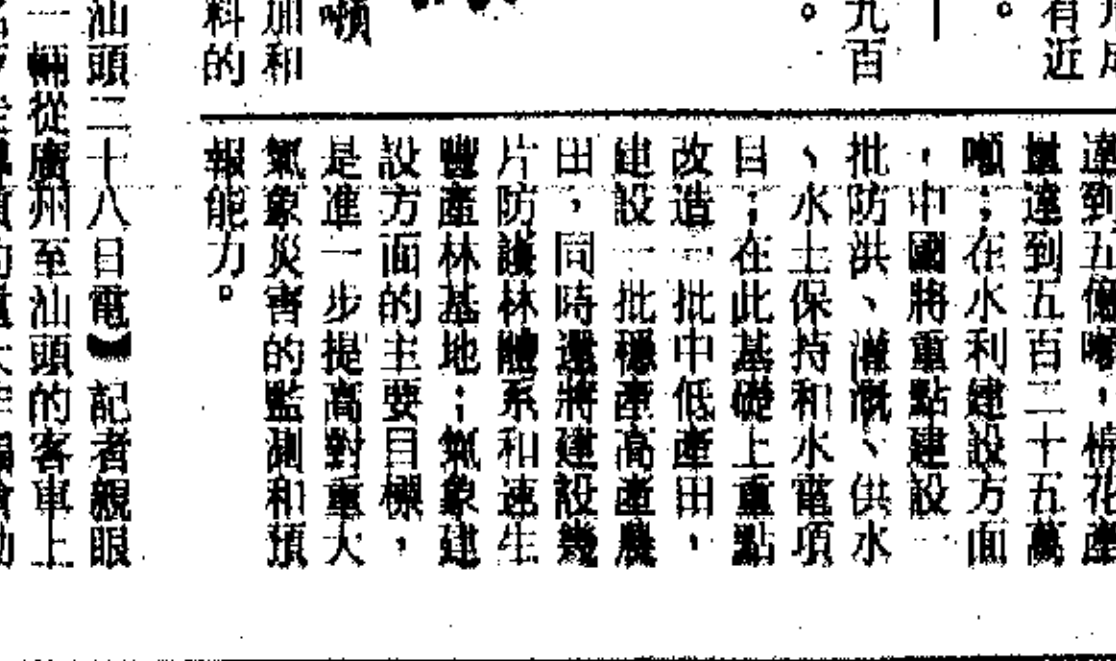 有近
。
九百
。
噸
加和
料的
達到五億噸，棉花產
量達到五百二十五萬
噸；在水利建設方面
，中國將重點建設一
批防洪、灌溉、供水
、水土保持和水電項
目；在此基礎上重點
改造一批中低產田，
建設一批穩產高產農
田，同時還將建設幾
片防護林體系和速生
豐產林基地；氣象建
設方面的主要目標，
是進一步提高對重大
氣象災害的監測和預
報能力。
汕頭二十八日電】記者親眼
一輛從廣州至汕頭的客車上